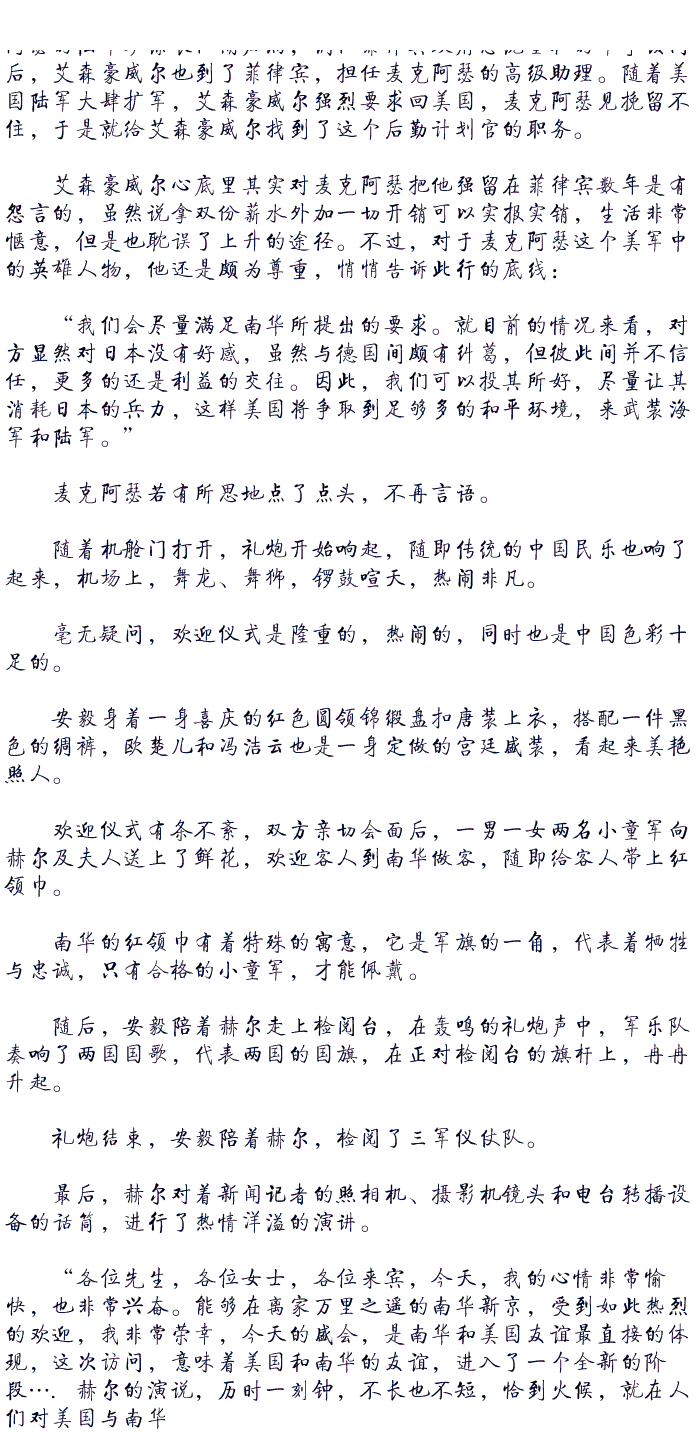 后，艾森豪威尔也到了菲律宾，担任麦克阿瑟的高级助理。随着美
国陆军大肆扩军，艾森豪威尔强烈要求回美国，麦克阿瑟见挽留不
住，于是就给艾森豪威尔找到了这个后勤计划官的职务。
艾森豪威尔心底里其实对麦克阿瑟把他强留在菲律宾数年是有
怨言的，虽然说拿双份薪水外加一切开销可以实报实销，生活非常
惬意，但是也耽误了上升的途径。不过，对于麦克阿瑟这个美军中
的英雄人物，他还是颇为尊重，悄悄告诉此行的底线：
“我们会尽量满足南华所提出的要求。就目前的情况来看，对
方显然对日本没有好感，虽然与德国间颇有纠葛，但彼此间并不信
任，更多的还是利益的交往。因此，我们可以投其所好，尽量让其
消耗日本的兵力，这样美国将争取到足够多的和平环境，来武装海
军和陆军。”
麦克阿瑟若有所思地点了点头，不再言语。
随着机舱门打开，礼炮开始响起，随即传统的中国民乐也响了
起来，机场上，舞龙、舞狮，锣鼓喧天，热闹非凡。
毫无疑问，欢迎仪式是隆重的，热闹的，同时也是中国色彩十
足的。
安毅身着一身喜庆的红色圆领锦缎盘扣唐装上衣，搭配一件黑
色的绸裤，欧楚儿和冯洁云也是一身定做的宫廷盛装，看起来美艳
照人。
欢迎仪式有条不紊，双方亲切会面后，一男一女两名小童军向
赫尔及夫人送上了鲜花，欢迎客人到南华做客，随即给客人带上红
领巾。
南华的红领巾有着特殊的寓意，它是军旗的一角，代表着牺牲
与忠诚，只有合格的小童军，才能佩戴。
随后，安毅陪着赫尔走上检阅台，在轰鸣的礼炮声中，军乐队
奏响了两国国歌，代表两国的国旗，在正对检阅台的旗杆上，冉冉
升起。
礼炮结束，安毅陪着赫尔，检阅了三军仪仗队。
最后，赫尔对着新闻记者的照相机、摄影机镜头和电台转播设
备的话筒，进行了热情洋溢的演讲。
“各位先生，各位女士，各位来宾，今天，我的心情非常愉
快，也非常兴奋。能够在离家万里之遥的南华新京，受到如此热烈
的欢迎，我非常荣幸，今天的盛会，是南华和美国友谊最直接的体
现，这次访问，意味着美国和南华的友谊，进入了一个全新的阶
段…. 赫尔的演说，历时一刻钟，不长也不短，恰到火候，就在人
们对美国与南华